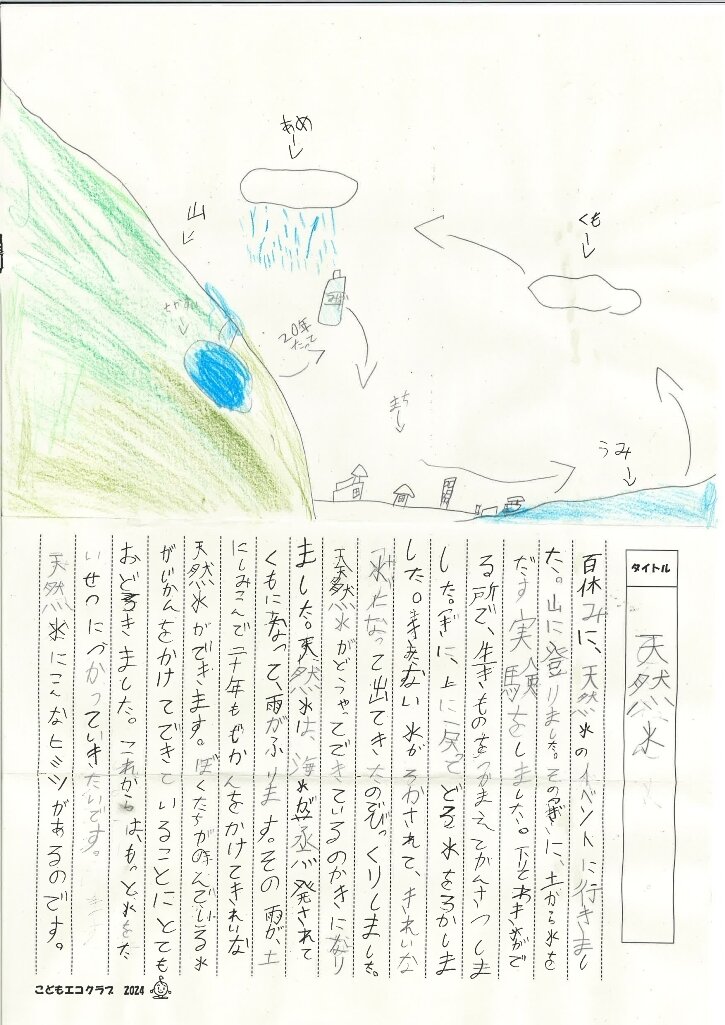 あめ
山
くも
みず
20年
たって
まち
うみ
タイトル
天然水
夏休みに、天然水のイベントに行きまし
た。山に登りました。そのつぎに、土から水を
だす実験をしました。下にあきちがで
る所で、生きものをつかまえてかんさつしま
した。つぎに、上に戻ってどろ水をろかしま
した。きたない水がろかされて、きれいな
水になって出てきたのでびっくりしました。
天然水がどうやってできているのかきになり
ました。天然水は、海水が蒸発されて
くもになって、雨がふります。その雨が、土
にしみこんで二十年もじかんをかけてきれいな
天然水ができます。ぼくたちが飲んでいる水
がじかんをかけてできていることにとても
おどろきました。これからは、もっと水をた
いせつにつかっていきたいです。
天然水にこんなヒミツがあるのです。
こどもエコクラブ 2024